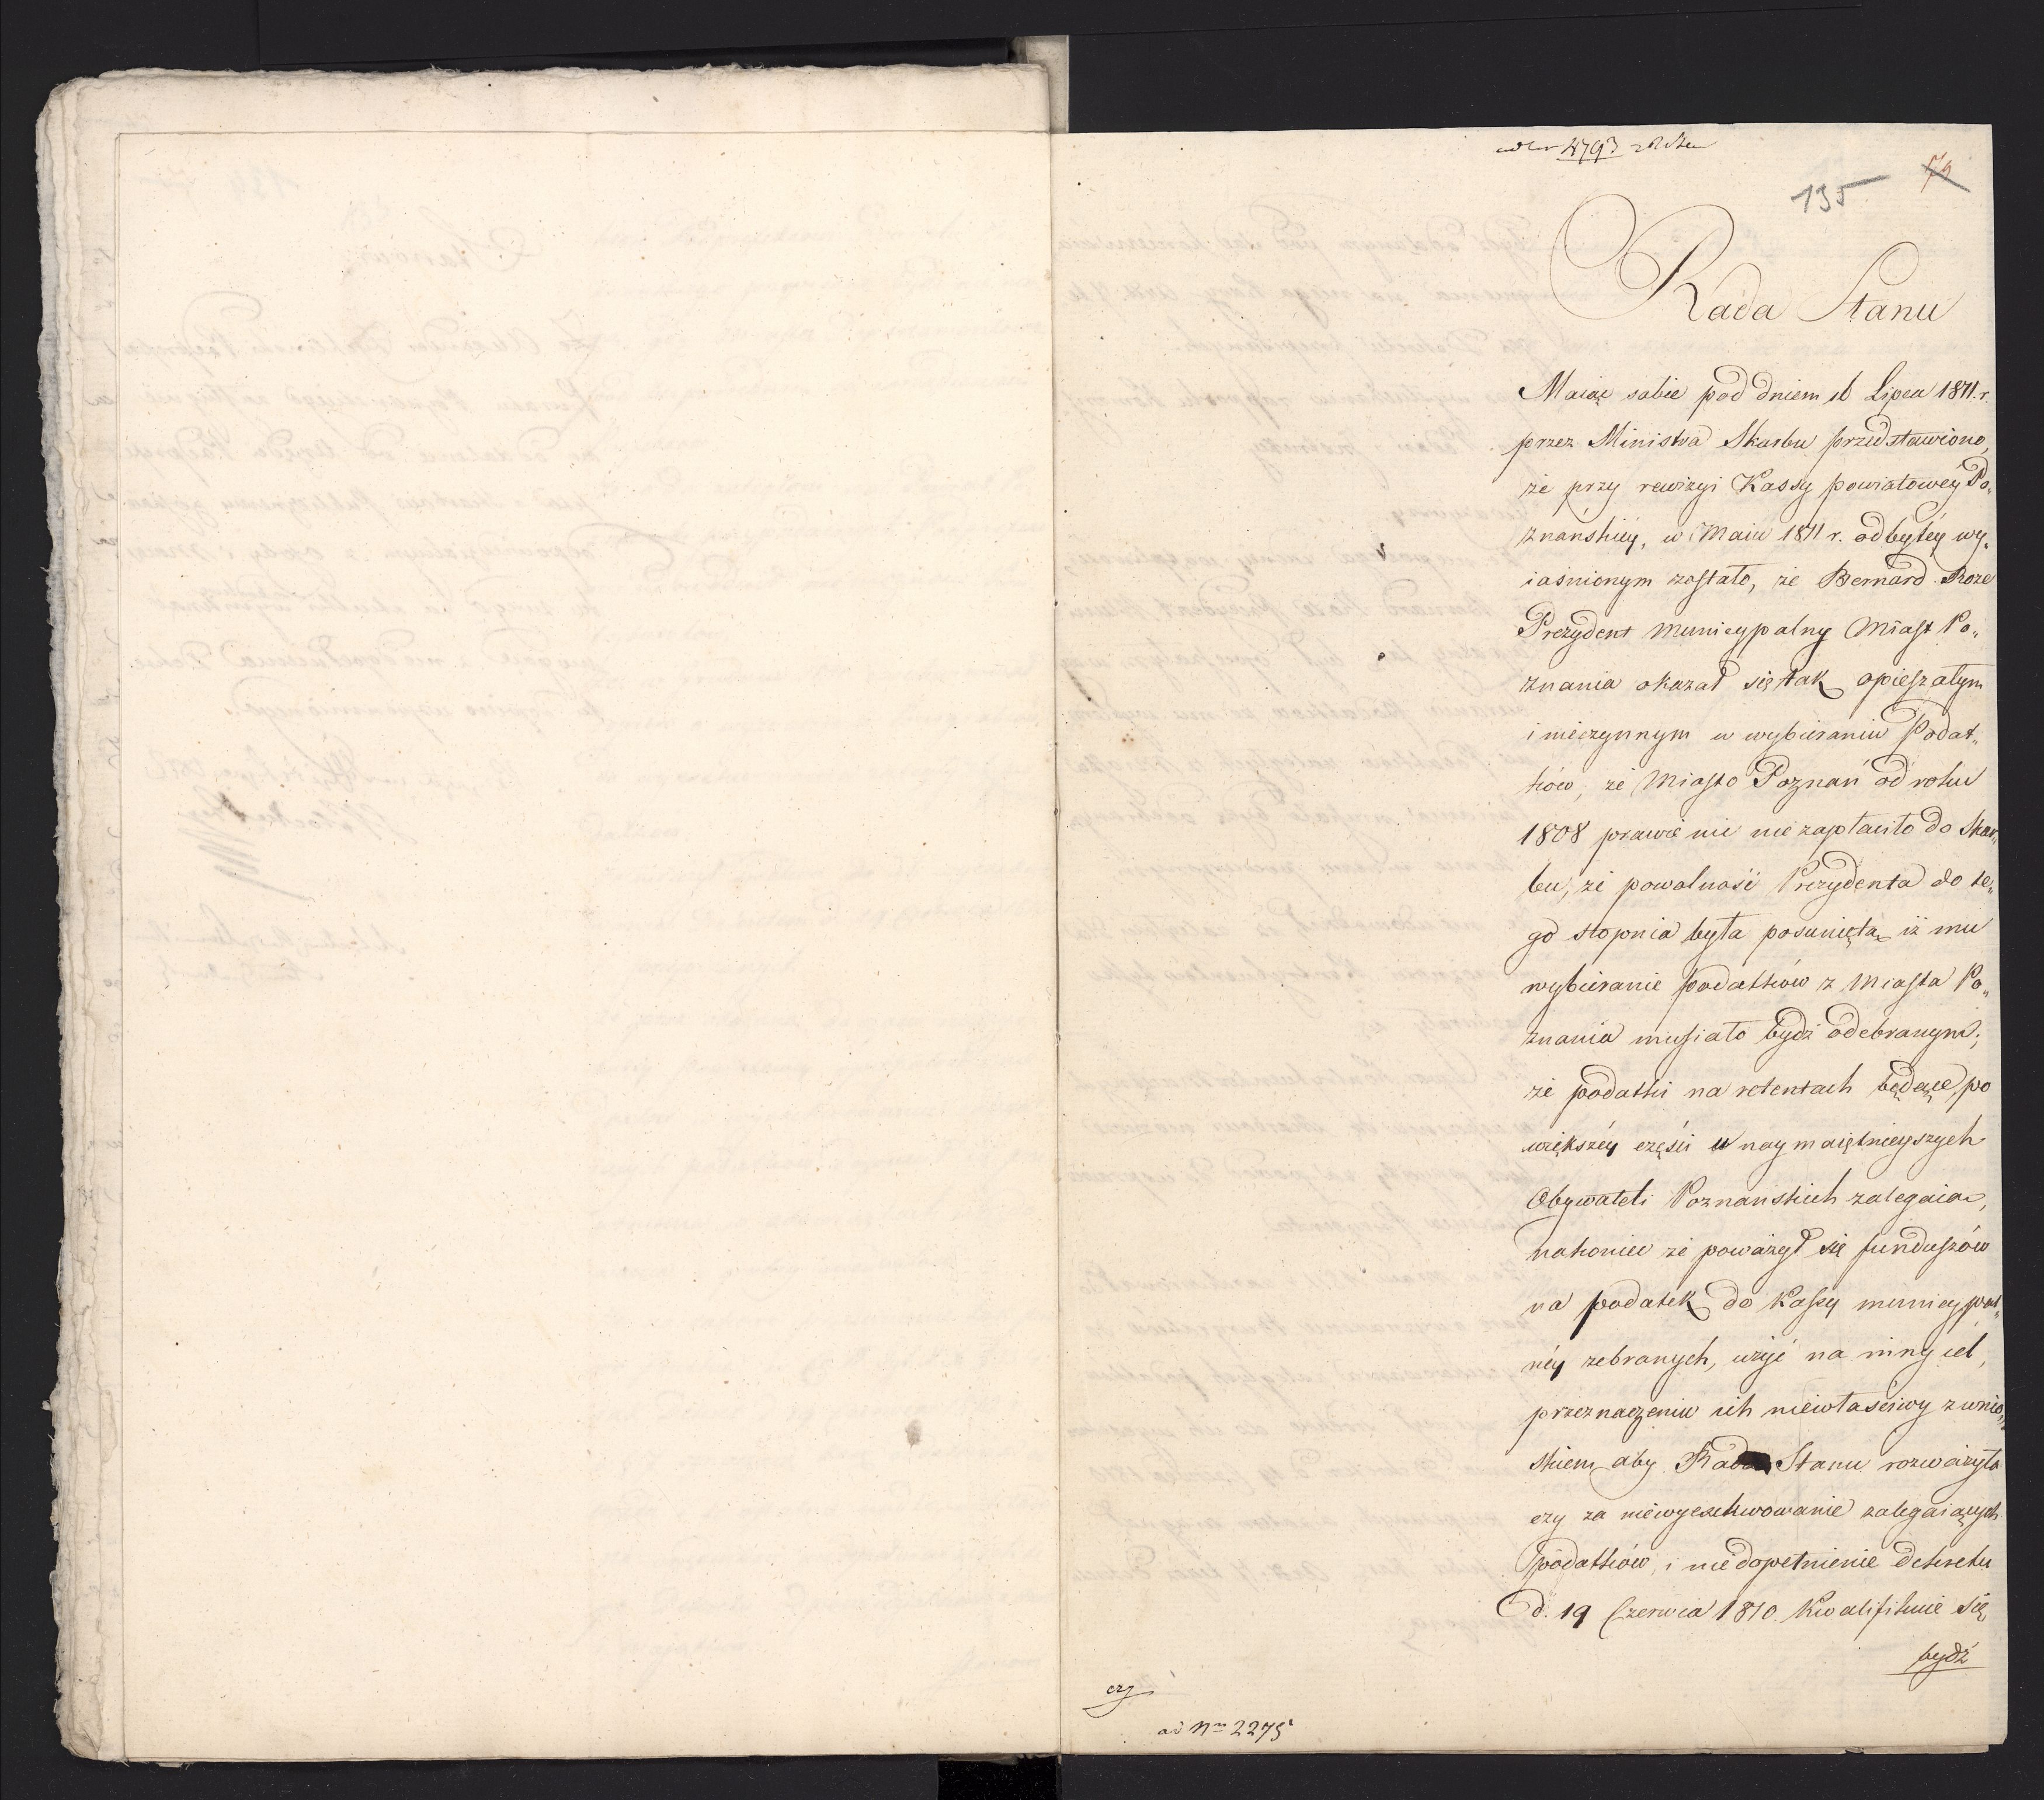 4793
79
135
Rada Stanu
Maiąc sobie pod dniem 16 Lipca 1811. r.
przez Ministra Skarbu przedstawiono,
że przy rewizyi Kassy powiatowéy Po„
znańskiéy, w Maiu 1811 r. odbytéy wy„
iaśnionym zostało, że Bernard Roze
Prezydent Municypalny Miast Po„
znania okazał się tak opieszałym
i nieczynnym w wybieraniu Podat„
ków, że Miasto Poznań od roku
1808 prawie nic nie zapłaciło do Skar„
bu, że powolność Prezydenta do te„
go stopnia była posunięta, iż mu
wybieranie podatków z Miasta Po„
znania musiało bydź odebranym;
że podatki na retentach będące, po
większéy części u naymaiętnieyszych
Obywateli Poznańskich zalegaią,
nakoniec że poważył się funduszów
na podatek do Kassy municypal„
néy zebranych, użyć na inny cel,
przeznaczeniu ich niewłaściwy z wnio„
skiem, aby Rada Stanu rozważyła
czy za niewyexekwowanie zalegaiących
podatków, i niedopełnienie dekretu
d. 19 Czerwca 1810. Kwalifikuie się
bydź
czy
ad Nrm 2275